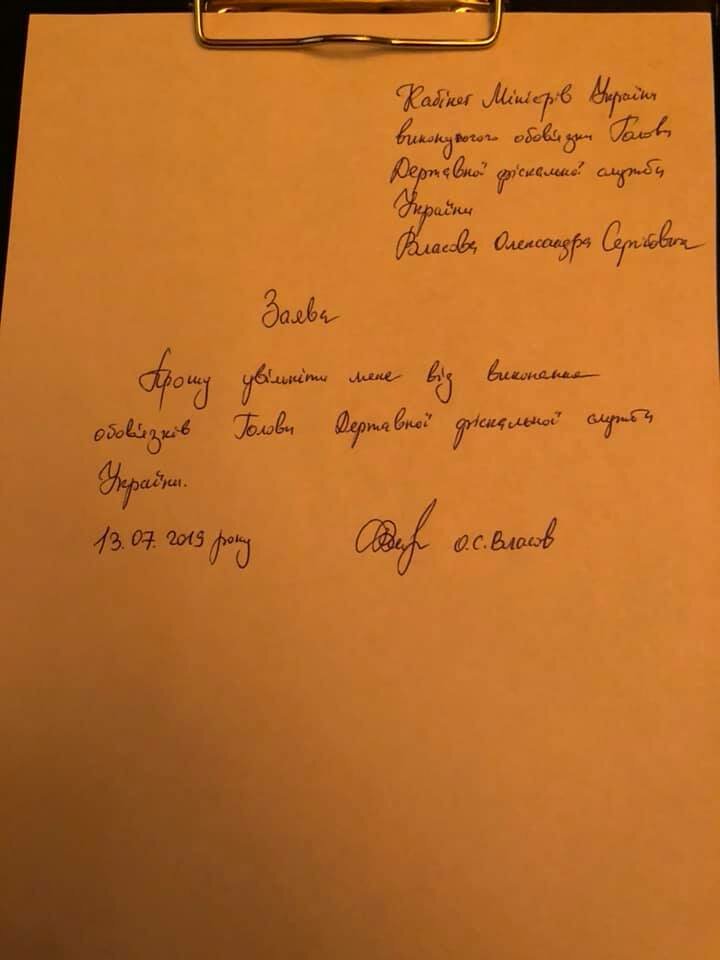 Кабінет Міністрів України
виконуючого обов'язки Голови
Державної фіскальної служби
України
Власова Олександра Сергійовича
Заява
Прошу увільнити мене від виконання
обов'язків Голови Державної фіскальної служби
України.
13.07.2019 року О.С. Власов